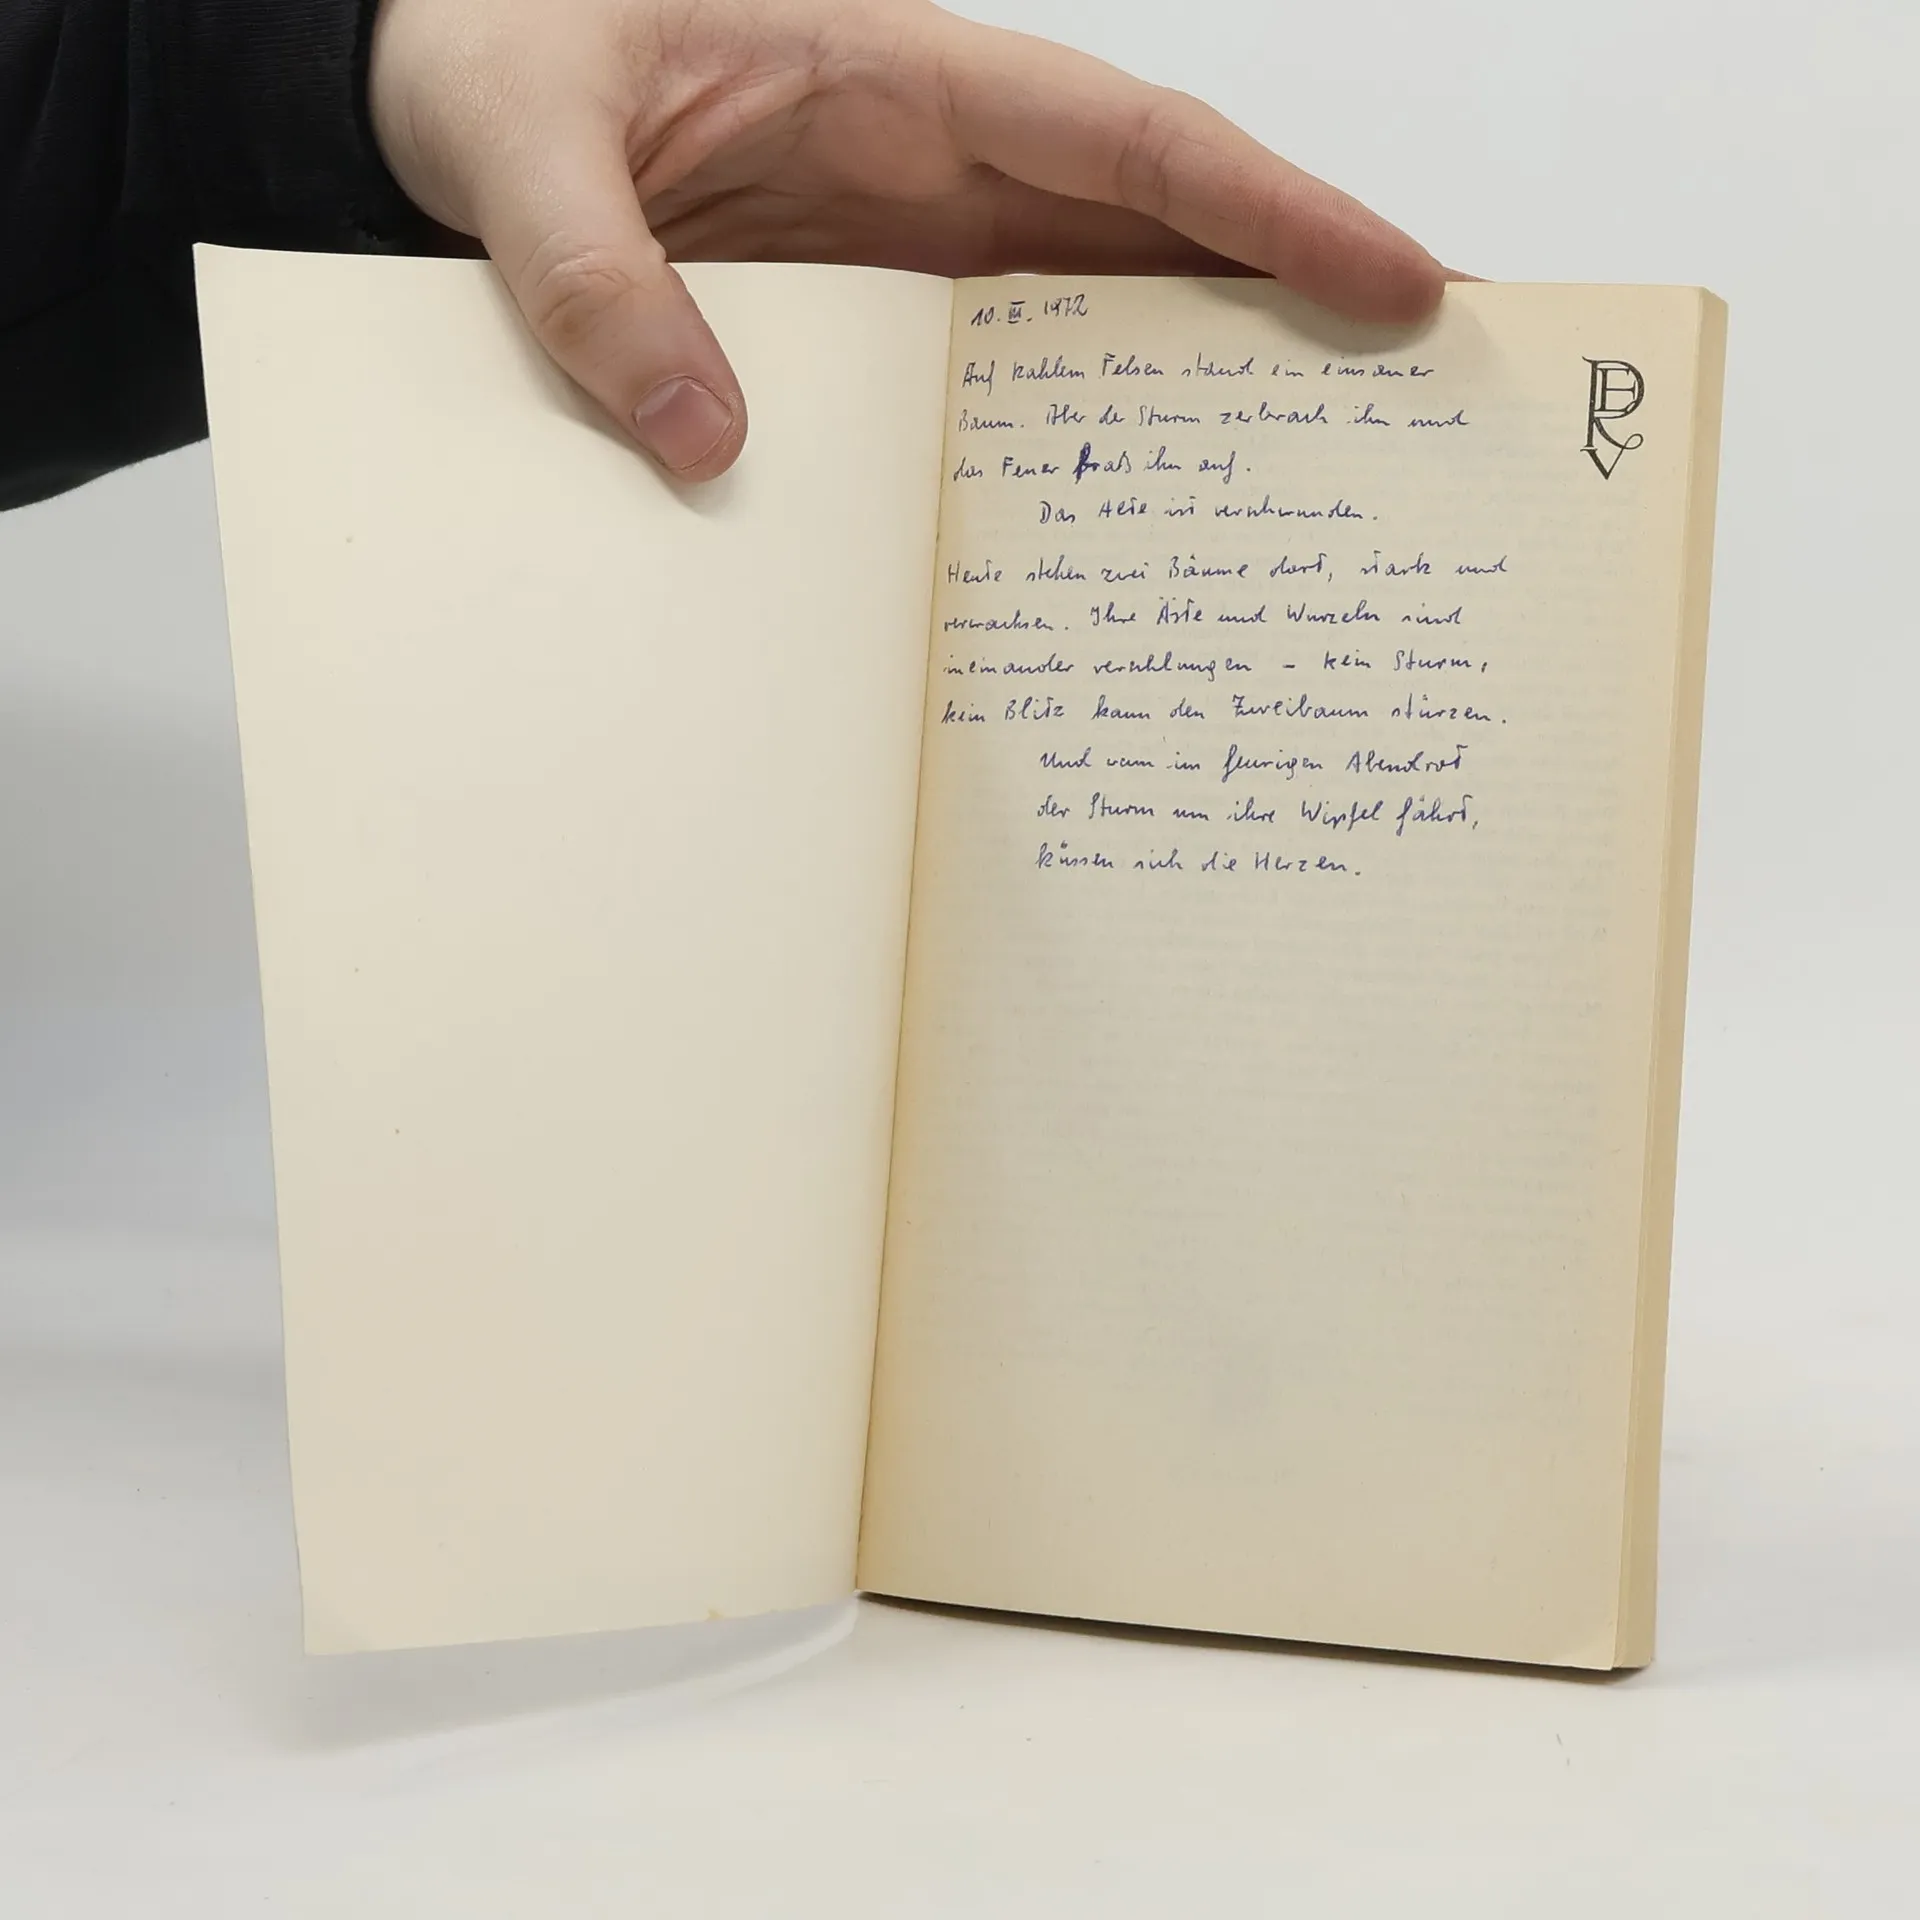 10. III. 1972
Auf kahlem Felsen stand ein einsamer
Baum. Aber der Sturm zerbrach ihn und
das Feuer fraß ihn auf.
Das Alte ist verschwunden.
Heute stehen zwei Bäume dort, stark und
verwachsen. Ihre Äste und Wurzeln sind
ineinander verschlungen – kein Sturm,
kein Blitz kann den Zweibaum stürzen.
Und wann im feurigen Abendrot
der Sturm um ihre Wipfel fährt,
küssen sich die Herzen.